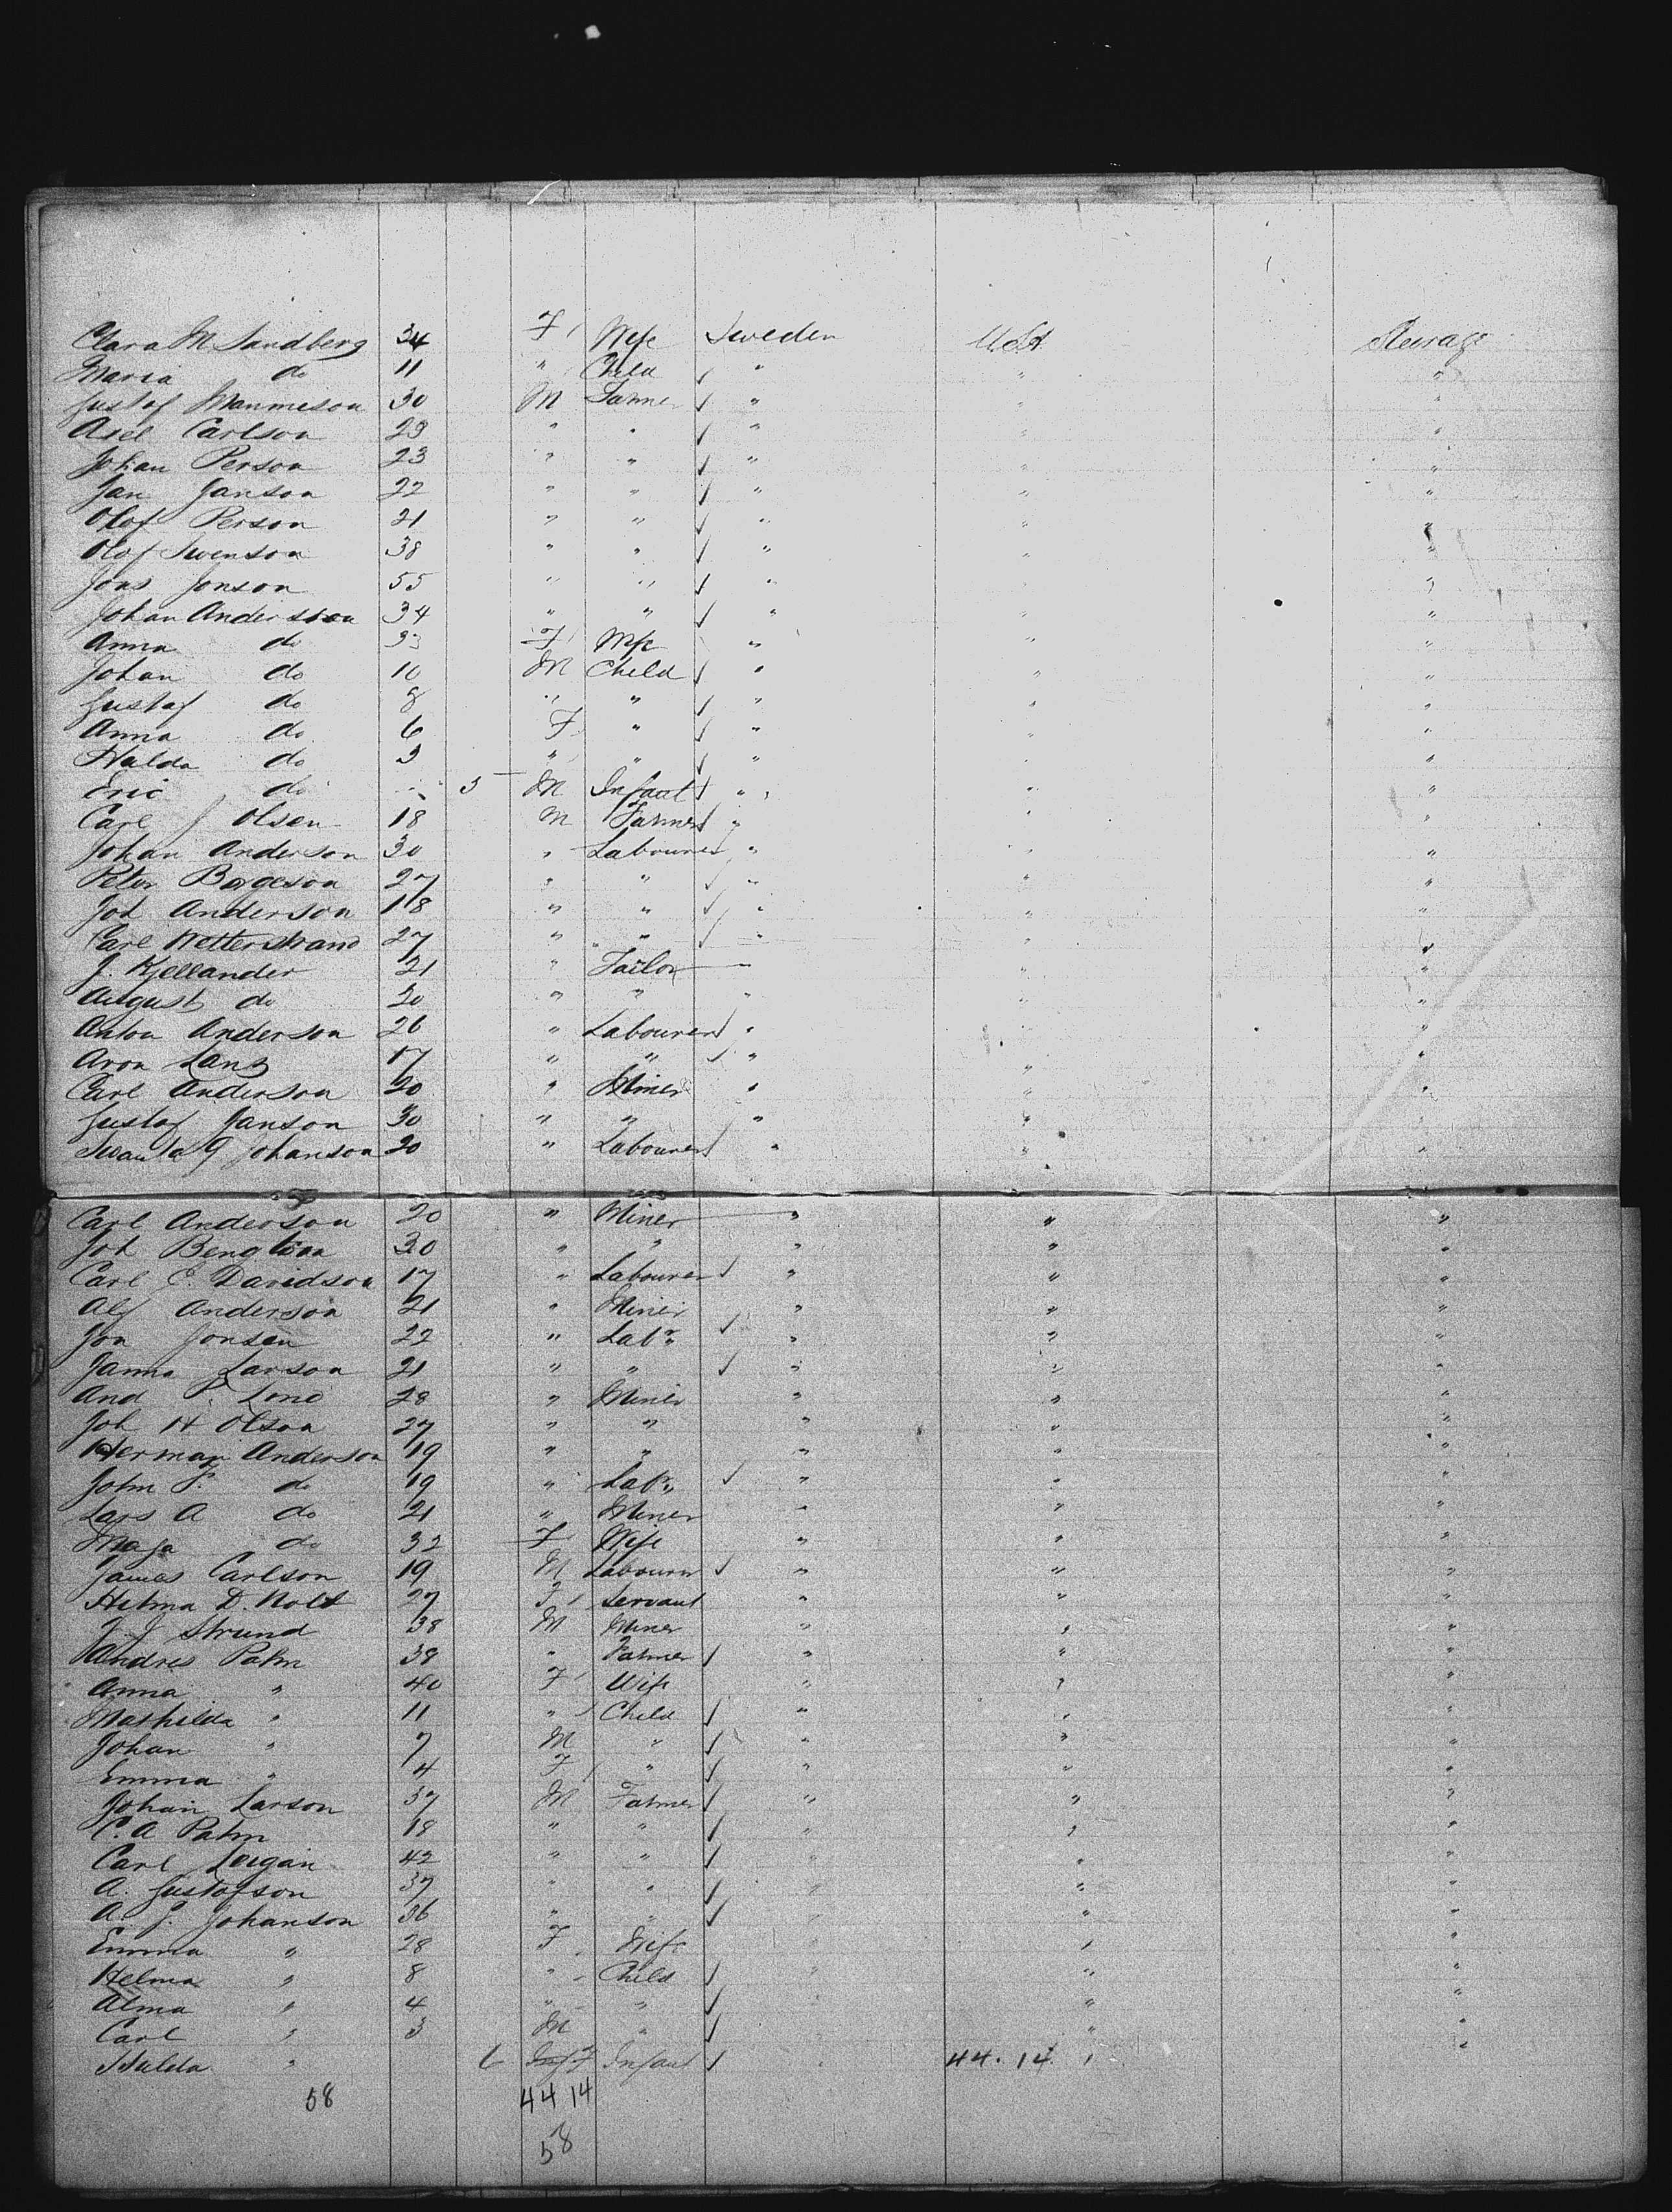 Clara M Sandberg 34 F Wife Sweden U.St. Steerage
Maria do 11 " Child " " "
Gustaf 30 M Farmer " " "
Axel Carlson 29 " " " " "
Johan Person 23 " " " " "
Jan Janson 22 " " " " "
Olof Person 21 " " " " "
Olof Swenson 38 " " " " "
Jons Jonson 55 " " " " "
Johan Andersson 34 " " " " "
Anna do 33 F Wife " " "
Johan do 10 M Child " " "
Gustaf do 8 " " " " "
Anna do 6 F " " " "
Halda do 3 " " " " "
Eric do 5 M Infant " " "
Carl J Olsen 18 M Farmer " " "
Johan Anderson 30 " Labourer " " "
Peter Borgeson 27 " " " " "
Joh Anderson 18 " " " " "
Carl Wetterstrand 27 " " " " "
J. Kjellander 21 " Tailor " " "
August do 20 " " " " "
Anton Anderson 26 " Labourer " " "
Aron Lanz 17 " " " " "
Carl Anderson 20 " Miner " " "
Gustaf Janson 30 " " " " "
Swanta G Johanson 20 " Labourer " " "
Carl Anderson 20 " Miner " " "
Joh Bengtson 30 " " " " "
Carl E. Davidson 17 " Labourer " " "
Alf Anderson 21 " Miner " " "
Jon Jonsen 22 " Labr " " "
Janna Larson 21 " " " " "
And P. Lind 28 " Miner " " "
Joh H Olson 27 " " " " "
Herman Anderson 19 " " " " "
John P. do 19 " Labr " " "
Lars A do 21 " Miner " " "
Maja do 32 F Wife " " "
James Carlson 19 M Labourer " " "
Helma D. Nolt 27 F Servant " " "
J. J Strund 38 M Miner " " "
Andres Palm 38 " Farmer " " "
Anna " 40 F Wife " " "
Mathilda " 11 " Child " " "
Johan " 7 M " " " "
Emma " 4 F " " " "
Johan Larson 37 M Farmer " " "
C. A Palm 18 " " " " "
Carl 42 " " " " "
A. Gustafson 37 " " " " "
A. J. Johanson 36 " " " " "
Emma " 28 F Wife " " "
Helma " 8 " Child " " "
Alma " 4 " " " " "
Carl " 3 M " " " "
Hulda " 6 Inf F Infant " 44. 14. "
58 44 14
58